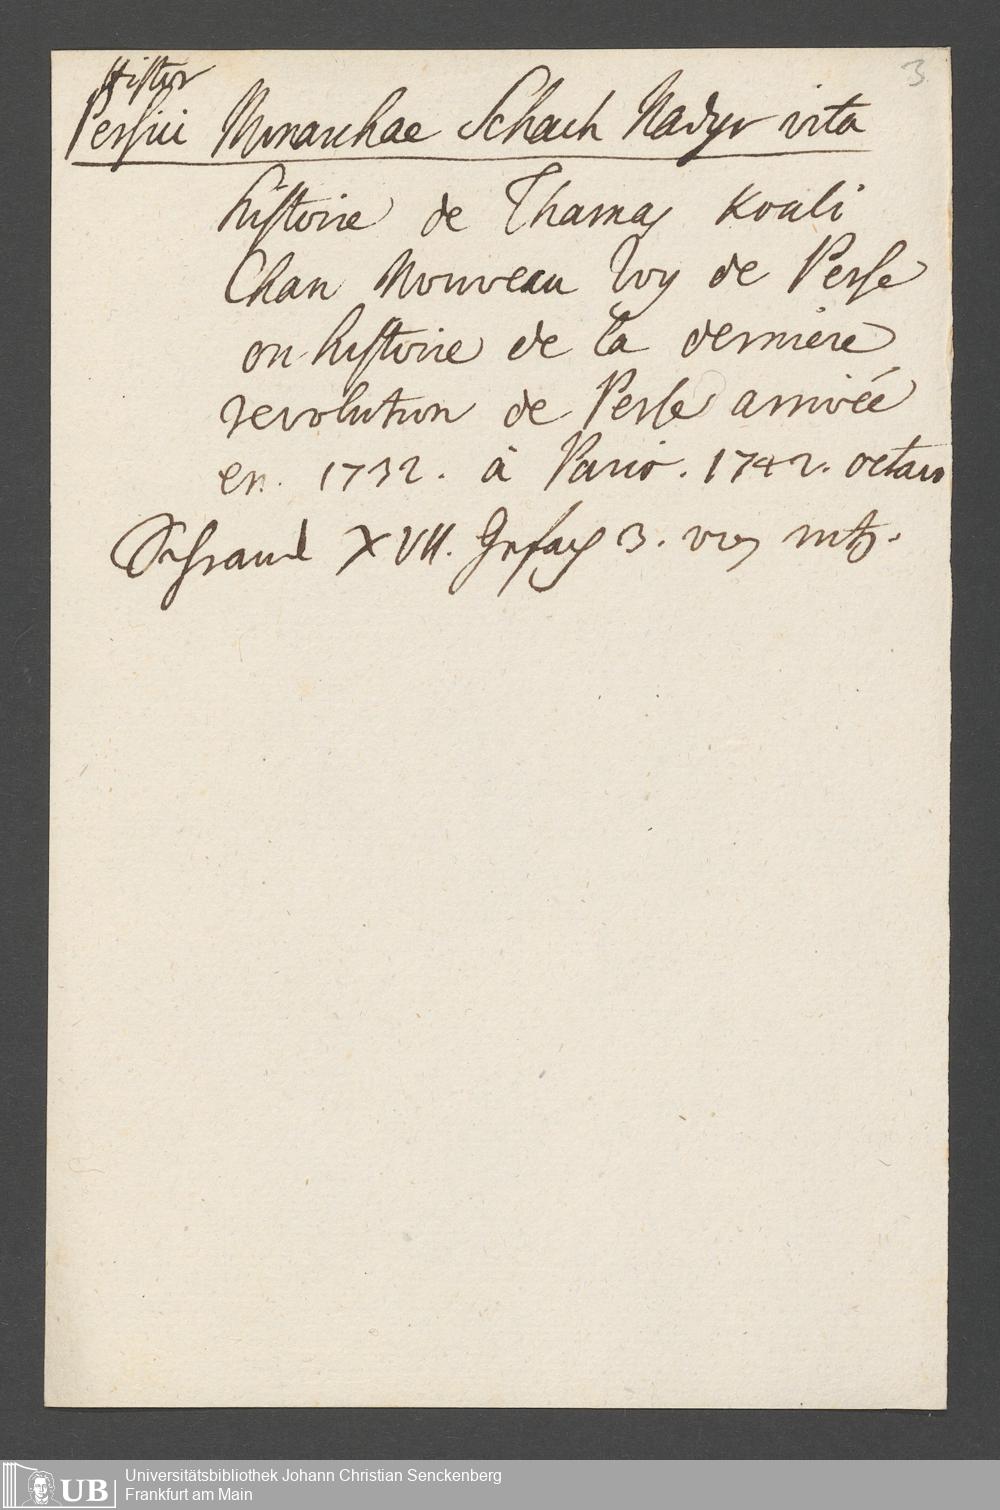 3
Histor
Persici Monarchae Schach Nadyr vita
histoire de Thamas Kouli
Chan Nouveau Roy de Perse
ou histoire de la derniere
revolution de Perse arrivée
en. 1732. à Paris. 1742. octavo
Schranck XVII. Gefach 3.
UB
Universitätsbibliothek Johann Christian Senckenberg
Frankfurt am Main